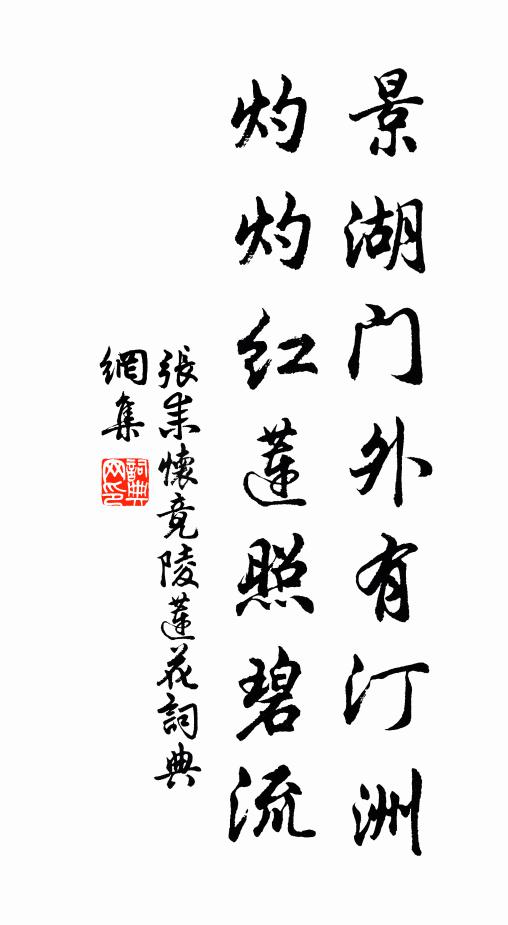 景湖门外有汀洲
灼灼红莲照碧流
張耒懷竟陵蓮花詞典
網集
詞典
网印